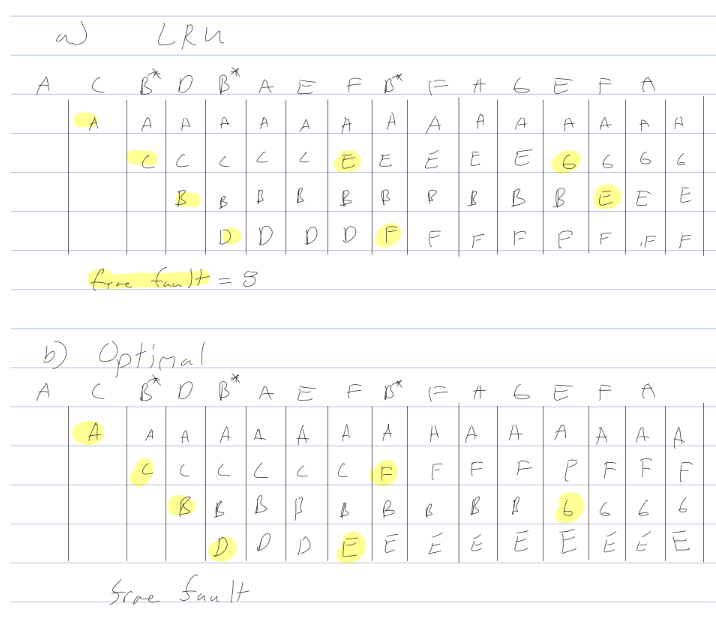 a) LRU
A C B* D B* A E F B* F A G E F A
A A A A A A A A A A A A A A A
C C C C C E E E E E G G G G
B B B B B B B B B B E E E
D D D D F F F F F F F F
frame fault = 8
b) Optimal
A C B* D B* A E F B* F A G E F A
A A A A A A A A A A A A A A A
C C C C C C F F F F F F F F
B B B B B B B B B G G G G
D D D E E E E E E E E E
frame fault